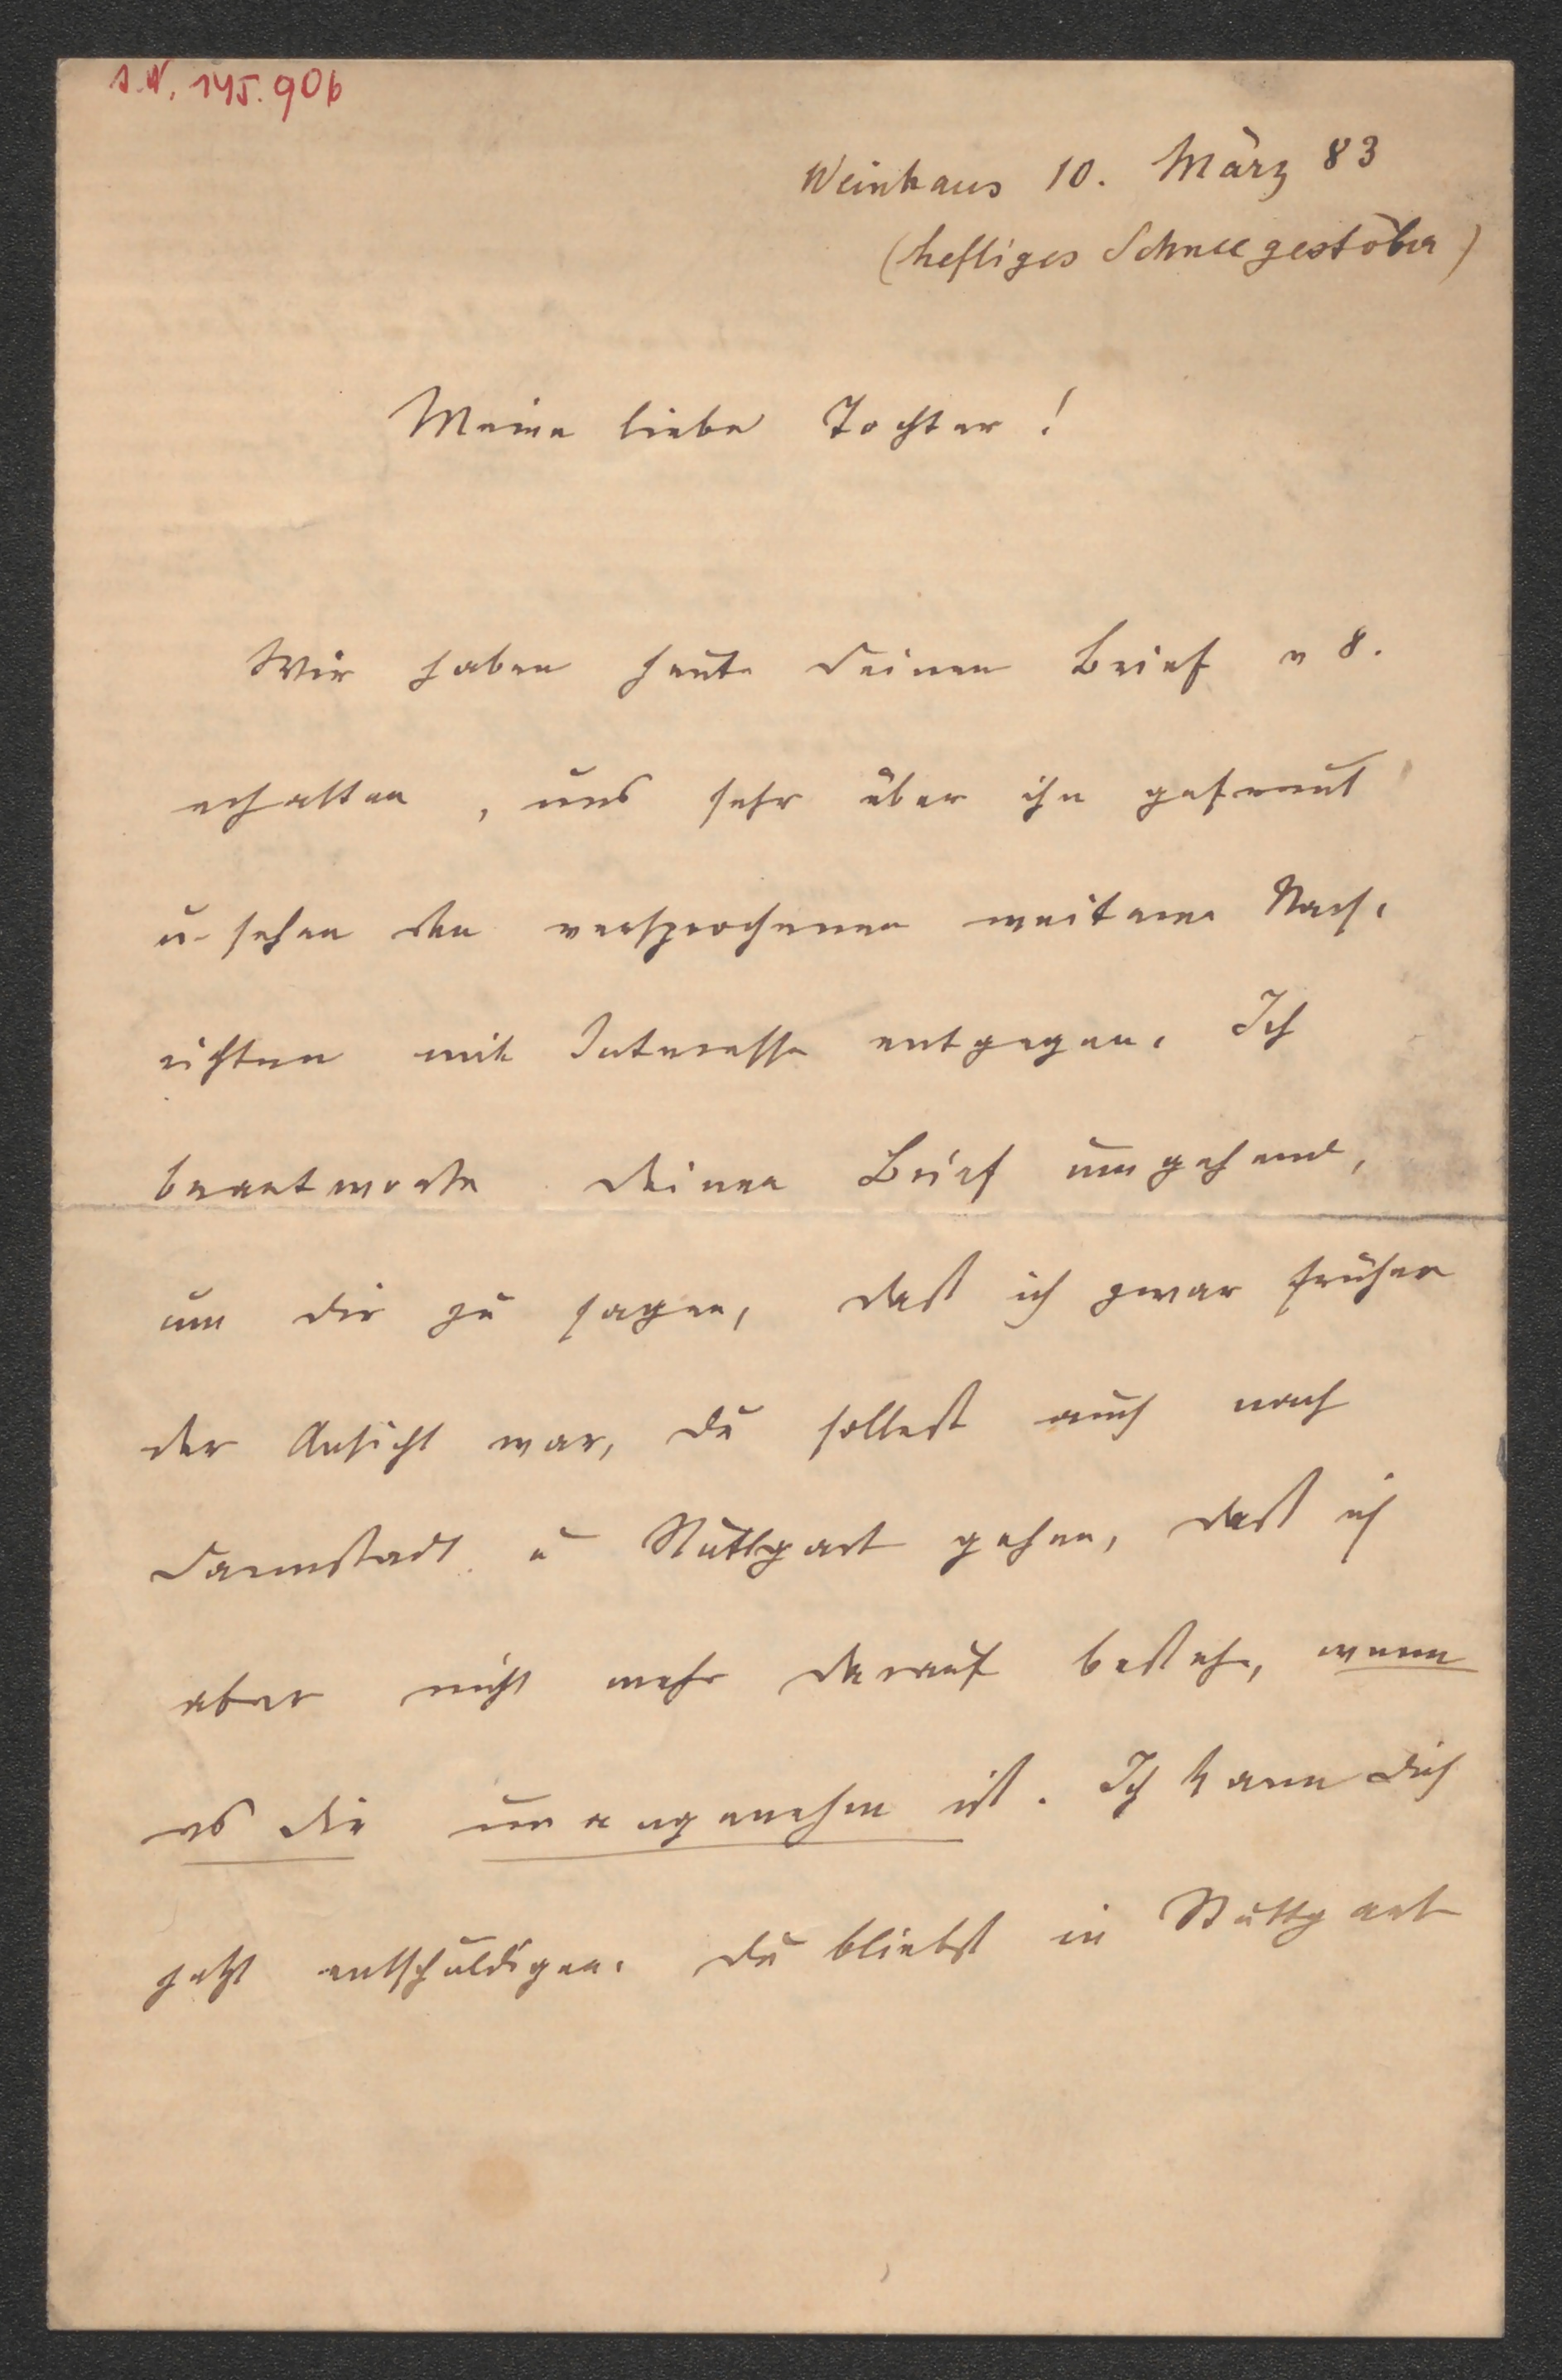 I.N. 145.906
Weinhaus 10. März 83
(heftiges Schneegestöber)
Meine liebe Tochter!
Wir haben heute Deinen Brief v 8.
erhalten, uns sehr über ihn gefreut
u. sehen den versprochenen weiteren Nach-
richten mit Interesse entgegen. Ich
beantworte Deinen Brief umgehend,
um Dir zu sagen, daß ich zwar früher
der Ansicht war, Du sollest auch nach
Darmstadt u Stuttgart gehen, daß ich
aber nicht mehr darauf bestehe, wenn
es Dir unangenehm ist. Ich kann Dich
jetzt entschuldigen. Du bliebst in Stuttgart